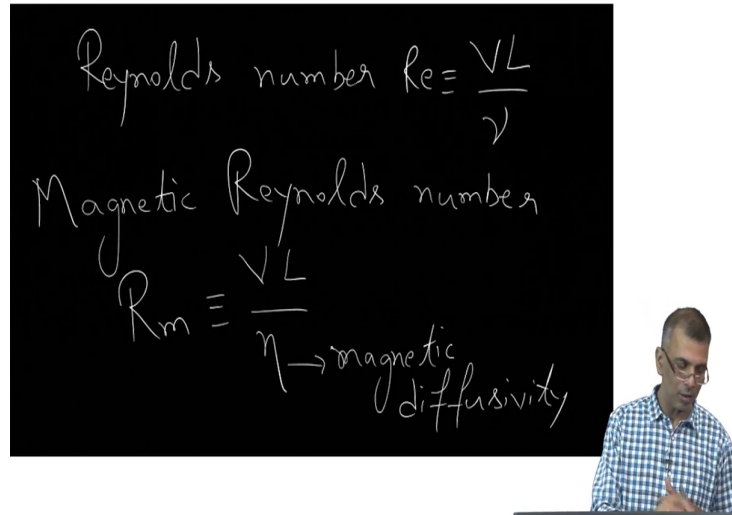 Reynolds number Re ≡ VL/ν
Magnetic Reynolds number
Rm ≡ VL/η → magnetic
diffusivity